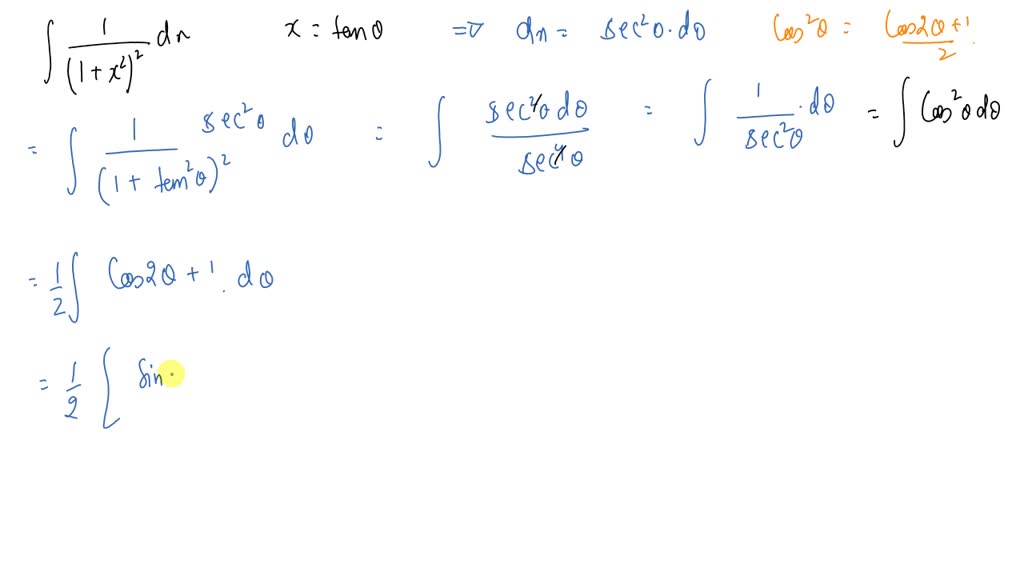 ∫ 1/(1+x²)² dx    x = tanθ    ⇒ dx = sec²θ·dθ    Cos²θ = (Cos2θ+1)/2
= ∫ 1/(1+tan²θ)² sec²θ dθ = ∫ sec²θ dθ/sec⁴θ = ∫ 1/sec²θ · dθ = ∫ Cos²θ dθ
= 1/2 ∫ Cos2θ + 1. dθ
= 1/2 [ Sin